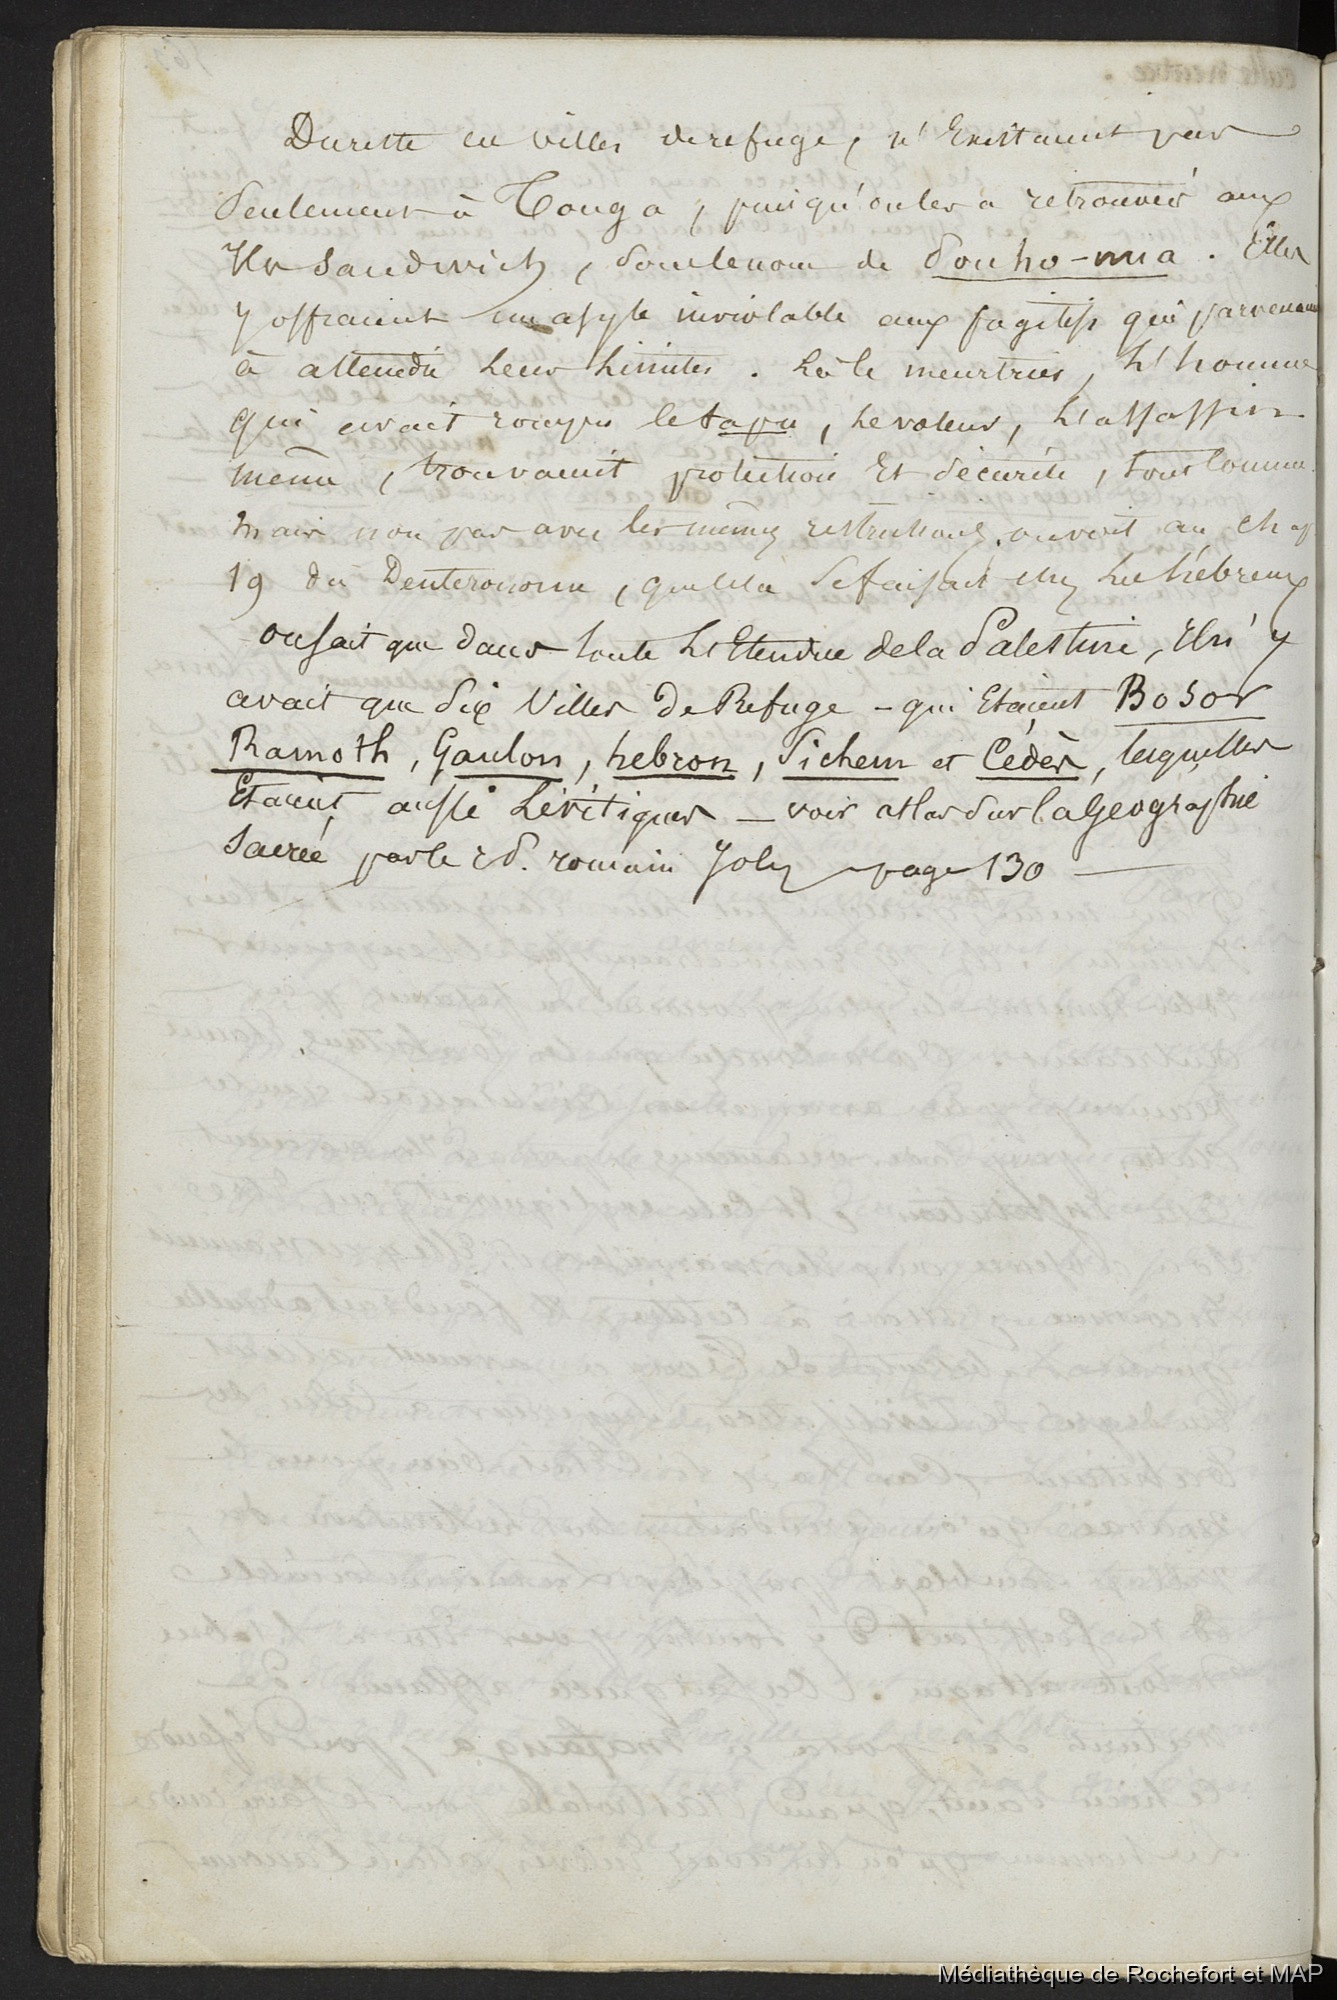 Dureste ces villes de refuge, n'Existaient pas
Seulement à Tonga, puis qu'on les a retrouvés aux
Iles Sandwich, sous le nom de Pouho-nua. Elles
y offraient un asyle inviolable aux fugitifs qui parvenaient
à atteindre leurs Limites. Là le meurtrier, L'homme
qui avait rompu le tapu, Le voleur, L'assassin
même, trouvaient protection Et Sécurité, tout comme
mais non pas avec les mêmes restrictions, on voit au chap
19 du Deuteronome, que cela Se faisait chez Les hébreux
on sait que dans toute L'Etendue de la Palestine, Il n'y
avait que Six Villes De Refuge - qui Etaient Bosor
Ramoth, Gaulon, hebron, Sichem et Cédès, lesquelles
Etaient aussi Lévitiques — voir atlas Sur la Geographie
Sacrée par le R. P. romain Joly page 130 —
Médiathèque de Rochefort et MAP